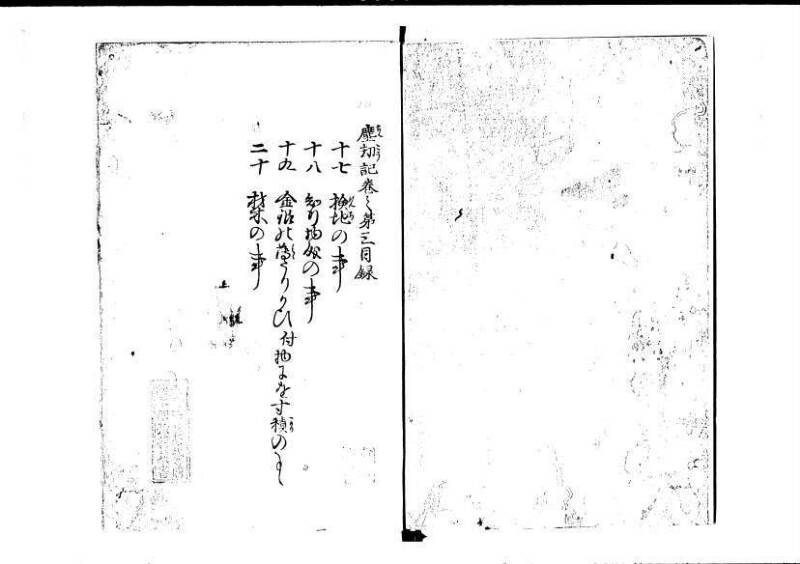 塵劫記巻之第三目録
十七 検地の事
十八 知行物成の事
十九 金銀の箔うりかひ 付 物にをす積の事
二十 材木の事